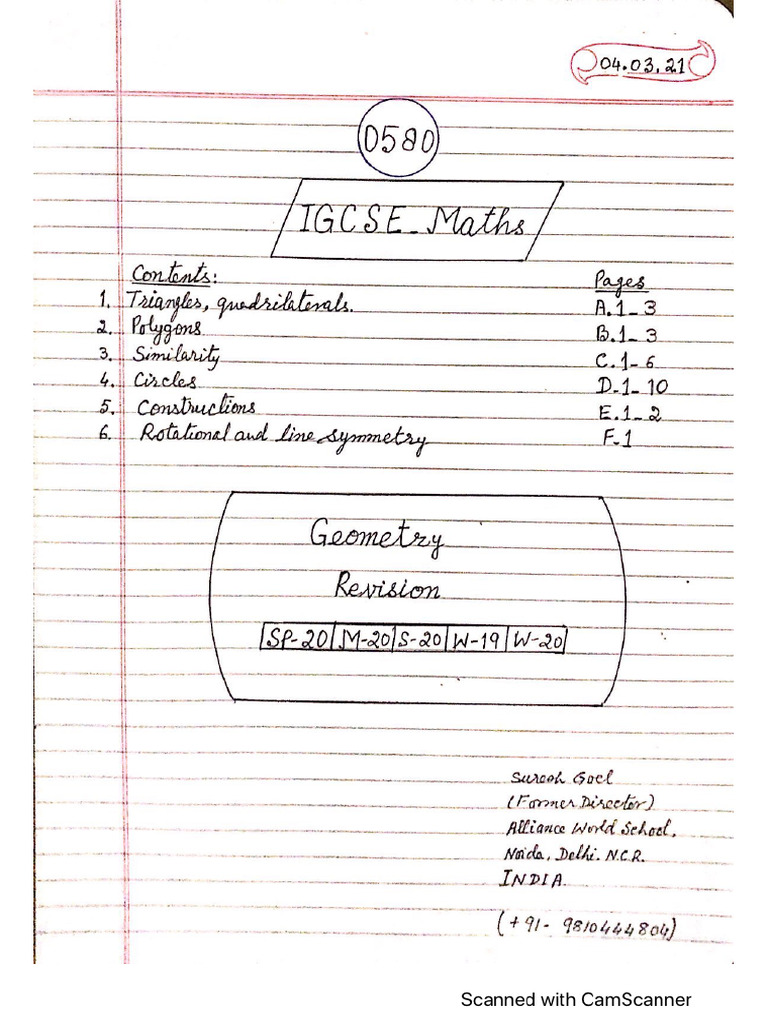 04.03.21
0580
IGCSE-Maths
Contents: Pages
1. Triangles, quadrilaterals. A.1-3
2. Polygons B.1-3
3. Similarity C.1-6
4. Circles D.1-10
5. Constructions E.1-2
6. Rotational and line symmetry F-1
Geometry
Revision
SP-20 M-20 S-20 W-19 W-20
Suresh Goel
(Former Director)
Alliance World School,
Noida, Delhi. N.C.R.
INDIA.
(+91- 9810444804)
Scanned with CamScanner